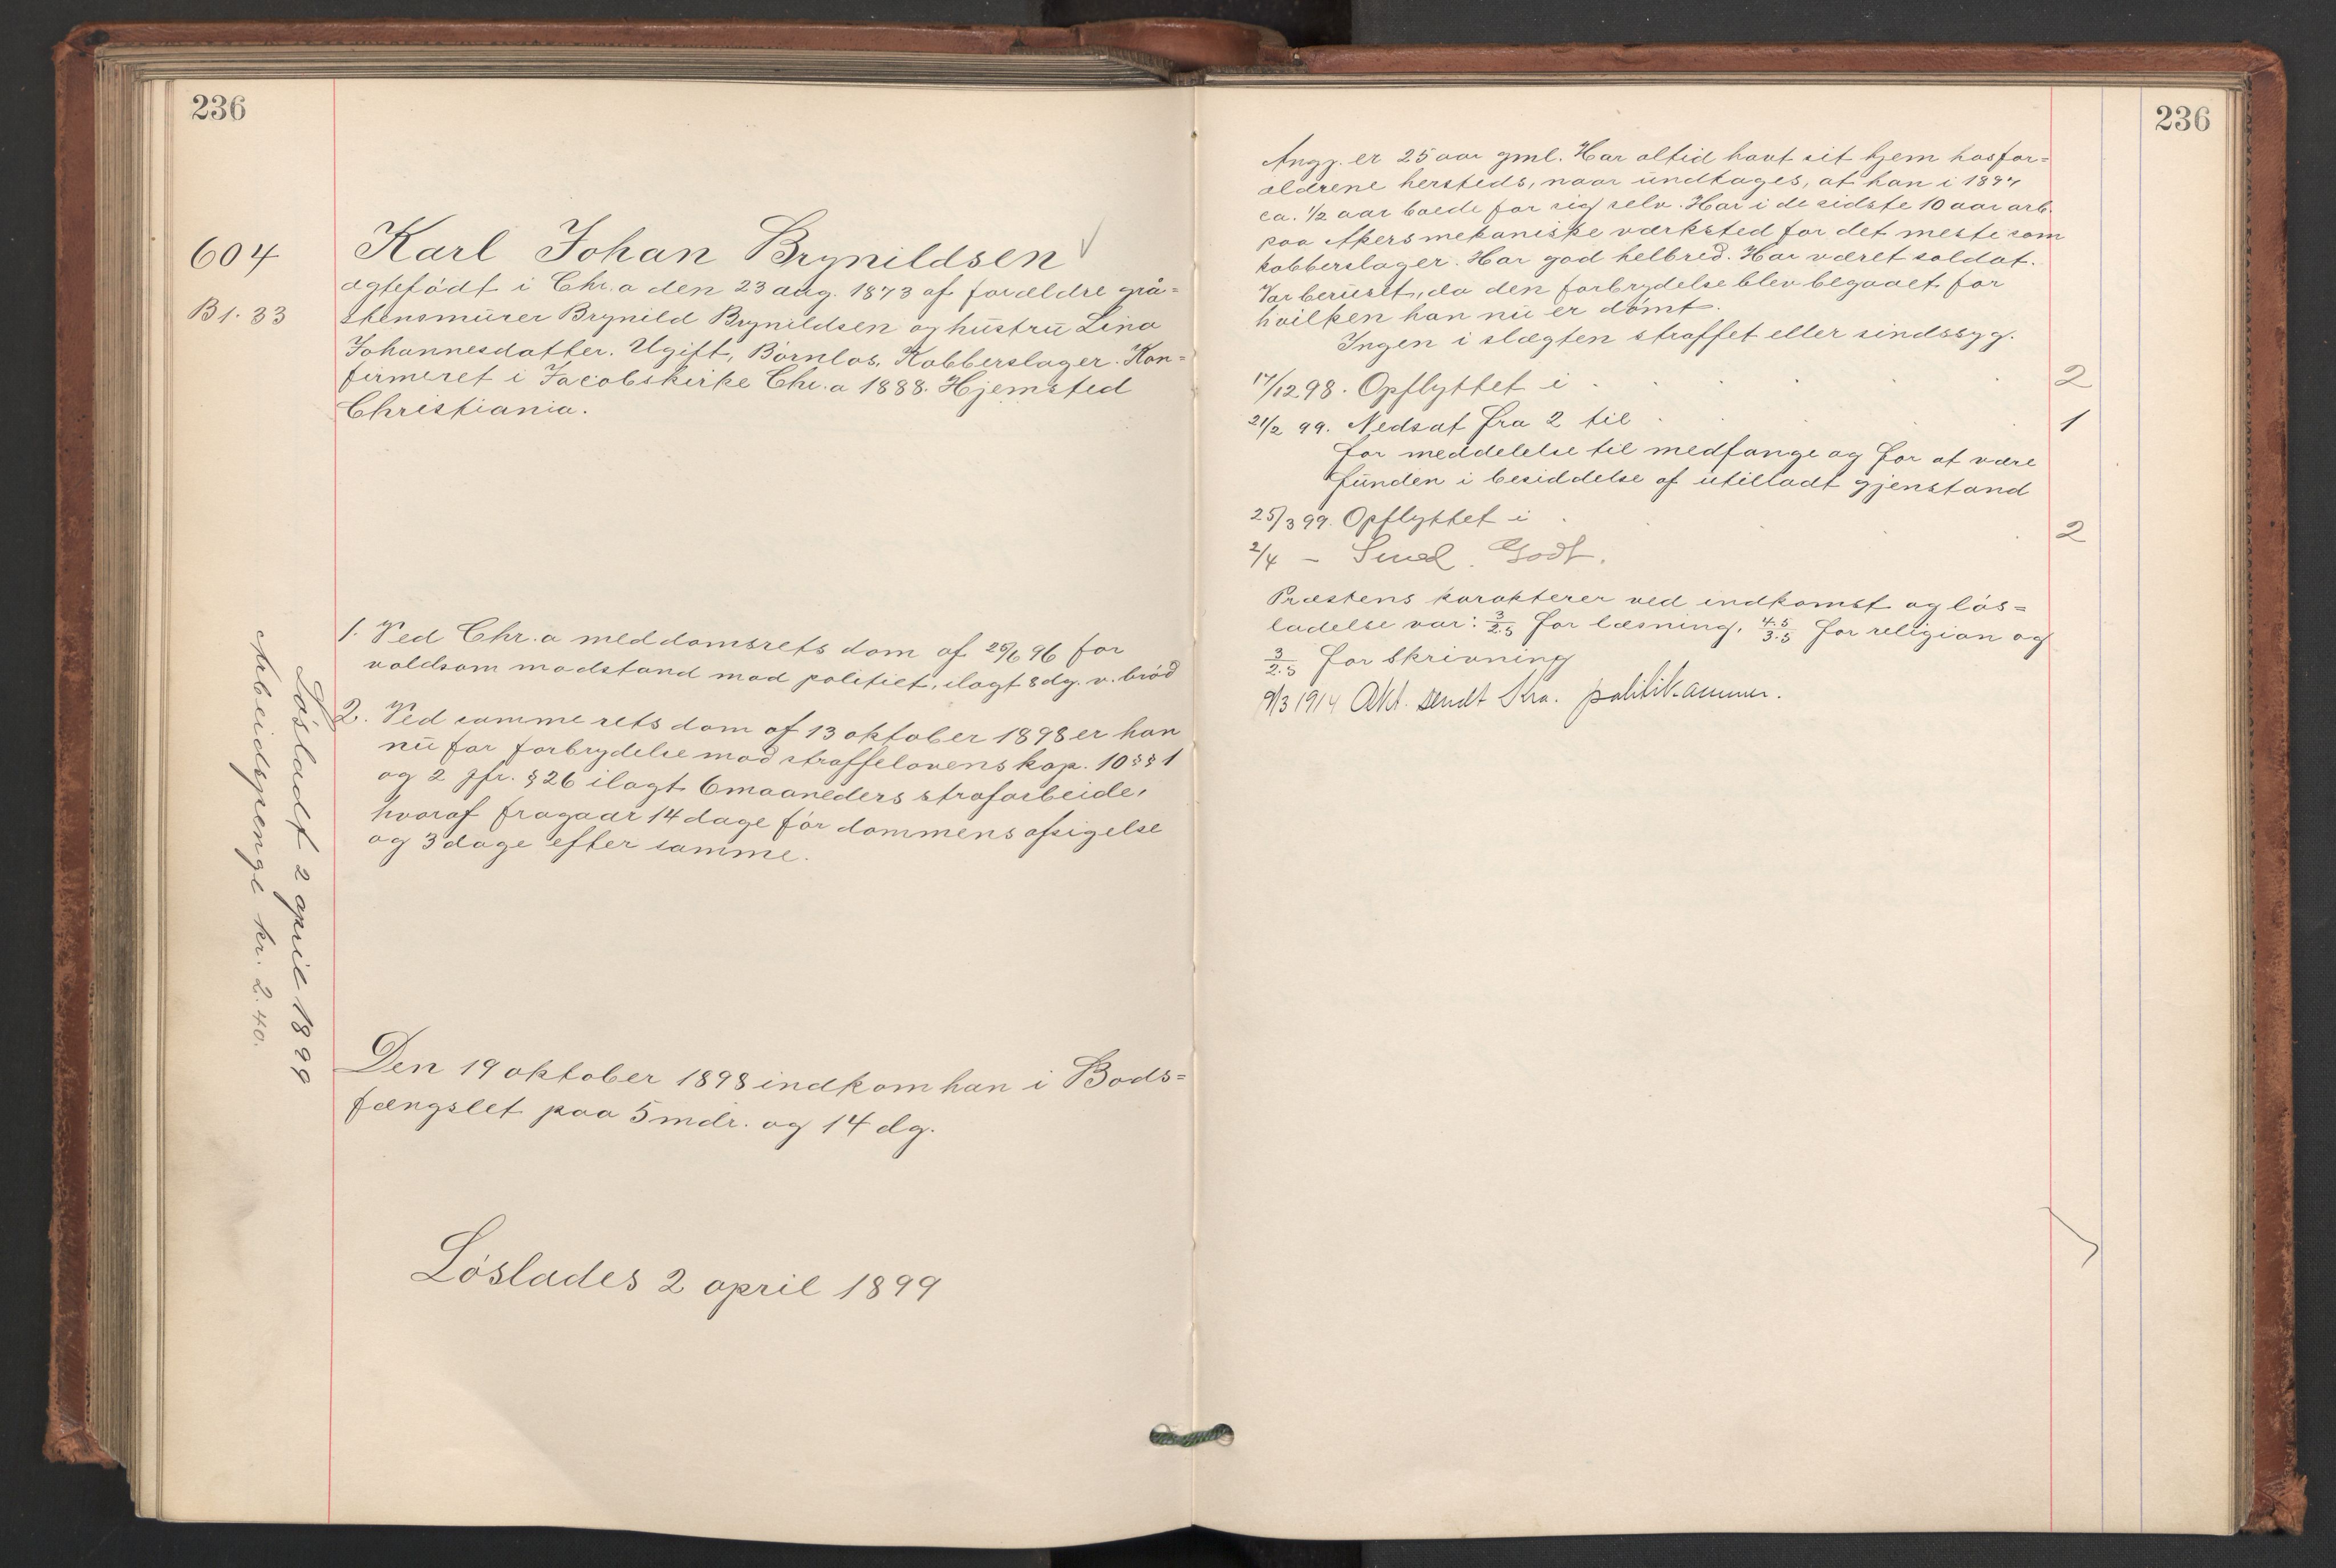 236
604
B 1. 33
Karl Johan Brynildsen
ægtefödt i Chr.a den 23 aug. 1873 af forældre grå=
stensmurer Brynild Brynildsen og hustru Lina
Johannesdatter. Ugift, Börnlös, Kobberslager. Kon=
firmeret i Jacobskirke Chr.a 1888. Hjemsted
Christiania.
1. Ved Chr.a meddomsrets dom af 26/6 96 for
voldsom modstand mod politiet, ilagt 8 dg. v. bröd
2. Ved samme rets dom af 13 oktober 1898 er han
nu for forbrydelse mod straffelovens kap. 10 §§ 1
og 2 jfr. § 26 ilagt 6 maaneders strafarbeide,
hvoraf fragaar 14 dage för dommens afsigelse
og 3 dage efter samme.
Lösladt 2 april 1899
Arbeidspenge kr. 2.40.
Den 19 oktober 1898 indkom han i Bods=
fængslet paa 5 mdr. og 14 dg.
Löslades 2 april 1899
236
Angj. er 25 aar gml. Har altid havt sit hjem hos for=
ældrene hersteds, naar undtages, at han i 1894
ca. 1/2 aar boede for sig selv. Har i de sidste 10 aar arb.
paa Akers mekaniske værksted for det meste som
kobberslager. Har god helbred. Har været soldat.
Var beruset, da den forbrydelse blev begaaet for
hvilken han nu er dömt.
Ingen i slægten straffet eller sindssyg.
17/12 98. Opflyttet i 2
21/2 99. Nedsat fra 2 til 1
for meddelelse til medfange og for at være
funden i besiddelse af utilladt gjenstand
25/3 99. Opflyttet i 2
2/4 – Godt.
Præstens karakterer ved indkomst og lös=
ladelse var: 3/2.5 for læsning, 4.5/3.5 for religion og
3/2.5 for skrivning
9/3 1914 Akt. sendt Kra. politikammer.